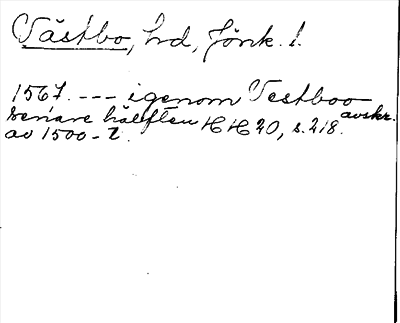 Västbo, hd, Jönk. l.
1567. --- igenom Vestboo
senare hälften HH 20, s. 218. avskr.
av 1500-t.